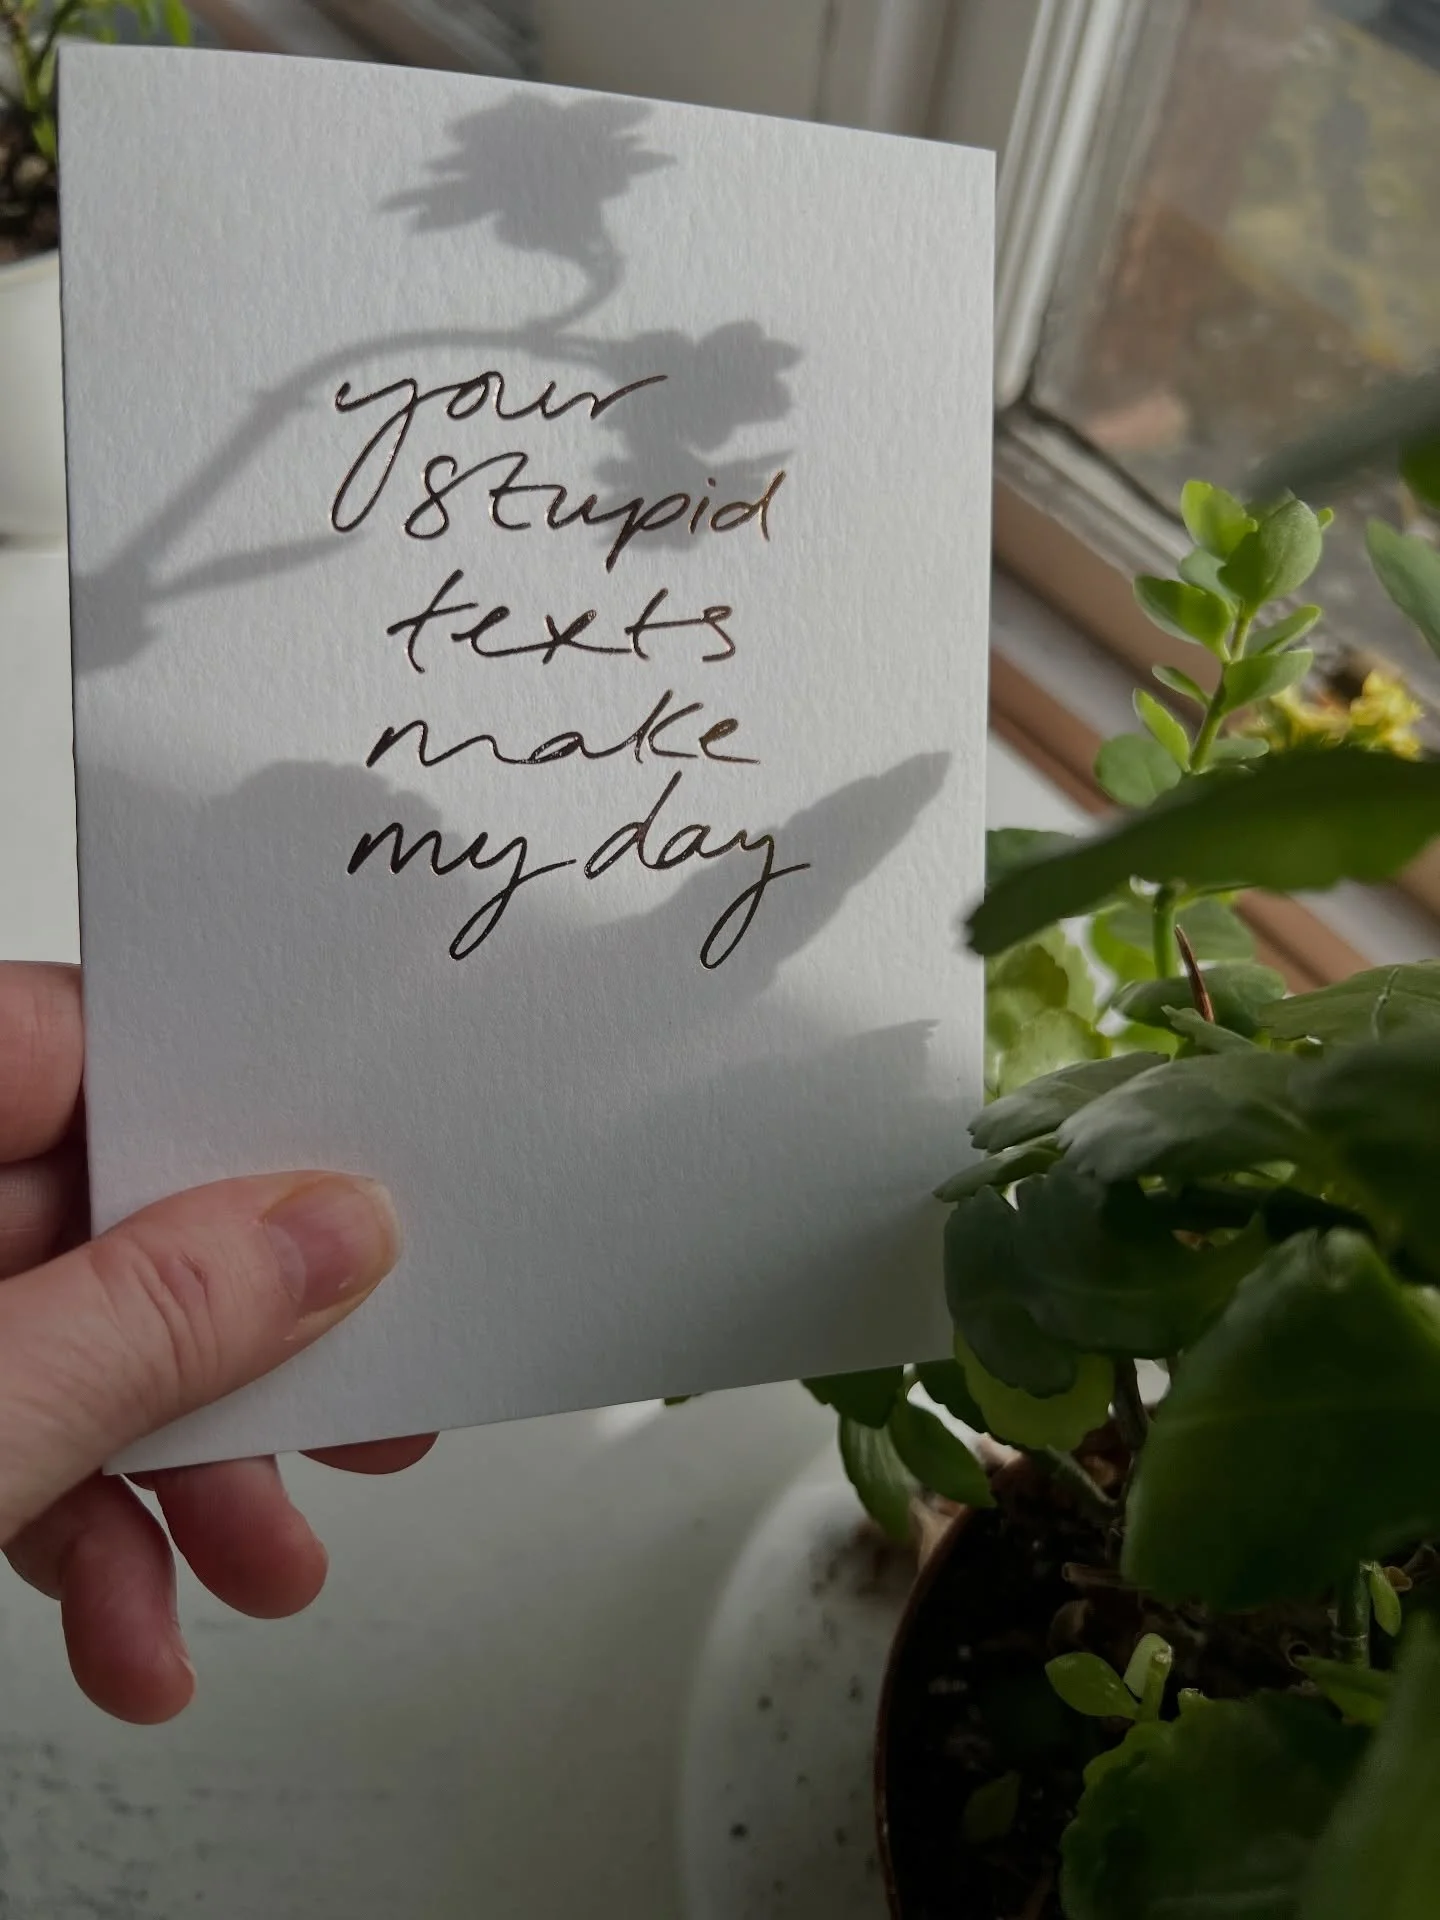 your
stupid
texts
make
my day